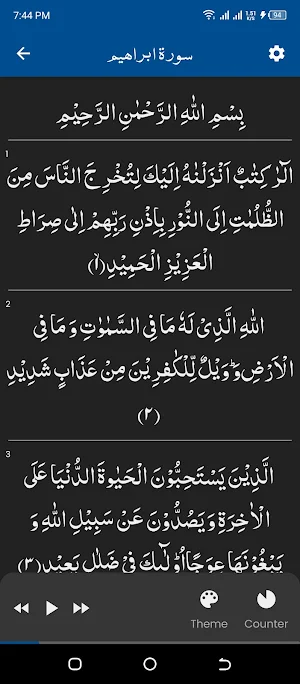 7:44 PM
1.51 K/s
94
سورة ابراهيم
بِسْمِ اللّٰهِ الرَّحْمٰنِ الرَّحِيْمِ
1
الٓرٰ كِتٰبٌ اَنْزَلْنٰهُ اِلَيْكَ لِتُخْرِجَ النَّاسَ مِنَ
الظُّلُمٰتِ اِلَى النُّوْرِ بِاِذْنِ رَبِّهِمْ اِلٰى صِرَاطِ
الْعَزِيْزِ الْحَمِيْدِ(۱)
2
اللّٰهِ الَّذِيْ لَهٗ مَا فِى السَّمٰوٰتِ وَ مَا فِى
الْاَرْضِؕ وَ وَيْلٌ لِّلْكٰفِرِيْنَ مِنْ عَذَابٍ شَدِيْدٍ
(۲)
3
الَّذِيْنَ يَسْتَحِبُّوْنَ الْحَيٰوةَ الدُّنْيَا عَلَى
الْاٰخِرَةِ وَ يَصُدُّوْنَ عَنْ سَبِيْلِ اللّٰهِ وَ
يَبْغُوْنَهَا عِوَجًاؕ اُولٰٓىٕكَ فِيْ ضَلٰلٍۭ بَعِيْدٍ(۳)
Theme
Counter